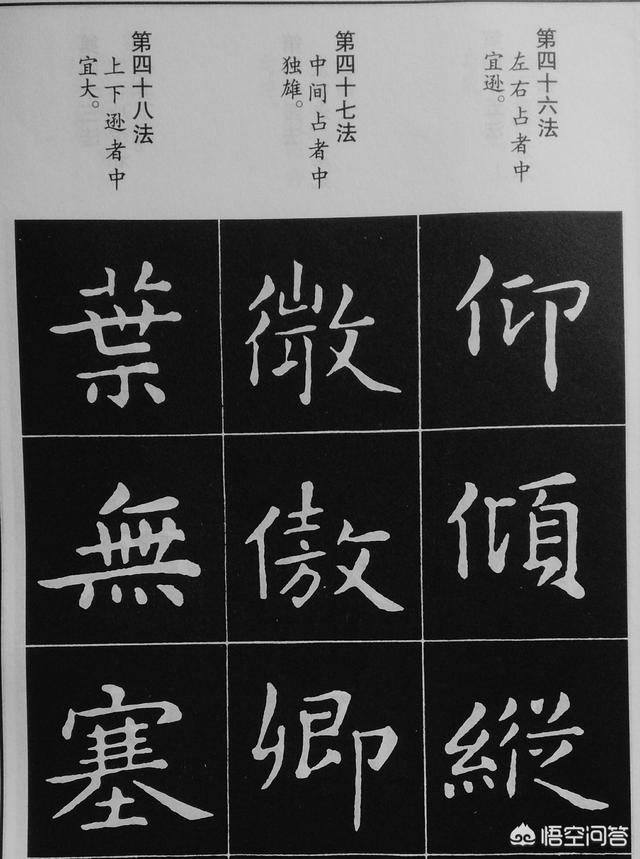 第四十六法
左右占者中
宜逊。
仰
傾
縱
第四十七法
中间占者中
独雄。
微
傲
卿
第四十八法
上下逊者中
宜大。
葉
無
塞
悟空问答